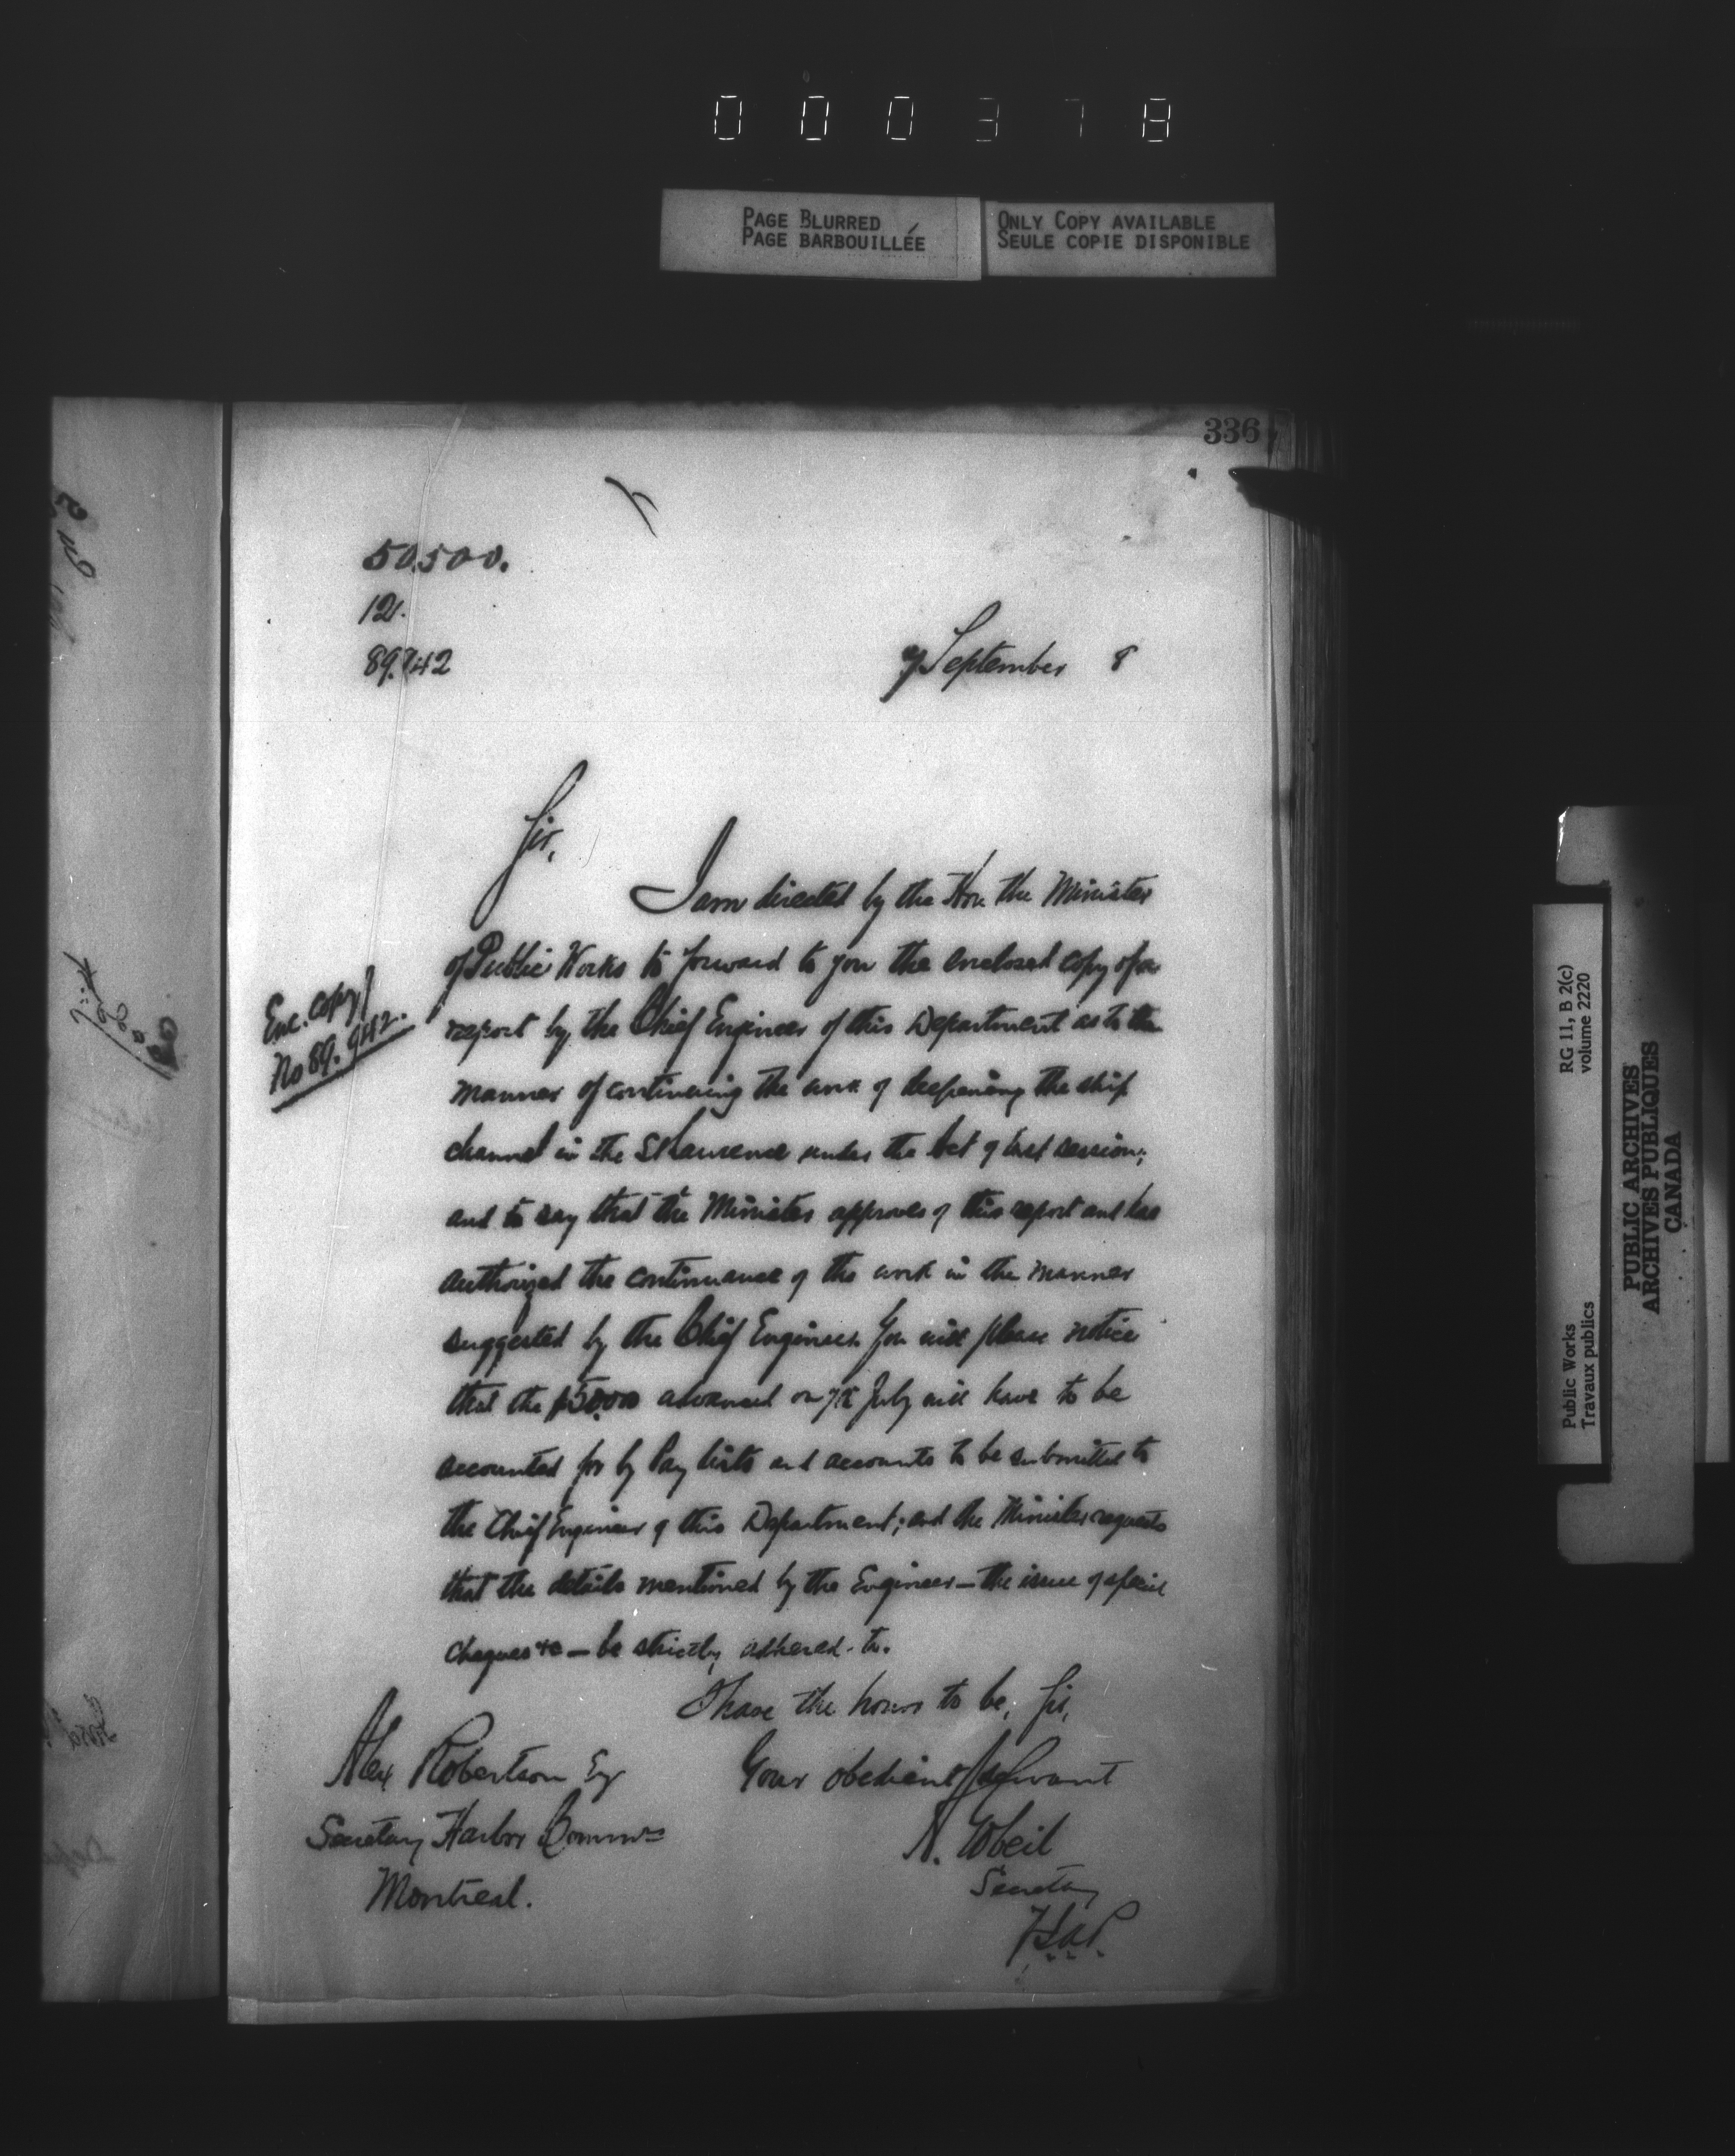 000378
PAGE BLURRED
PAGE BARBOUILLÉE
ONLY COPY AVAILABLE
SEULE COPIE DISPONIBLE
336
50,500.
121.
89.942
7 September 8
Sir,
I am directed by the Hon. the Minister
of Public Works to forward to you the enclosed copy of a
report by the Chief Engineer of this Department as to the
manner of continuing the work of deepening the ship
channel in the St Lawrence under the Act of last session;
and to say that the Minister approves of this report and has
authorized the continuance of the work in the manner
suggested by the Chief Engineer. You will please notice
that the advanced on 7th July will have to be
accounted for by Pay lists and accounts to be submitted to
the Chief Engineer of this Department; and the Minister requests
that the details mentioned by the Engineer — the issue of special
cheques &c — be strictly adhered to.
Enc. copy
No 89.942.
I have the honor to be, Sir,
Your obedient Servant
A. Gobeil
Secretary
Alex Robertson Esq
Secretary Harbor Commrs
Montreal.
RG 11, B 2(c)
volume 2220
Public Works
Travaux publics
PUBLIC ARCHIVES
ARCHIVES PUBLIQUES
CANADA